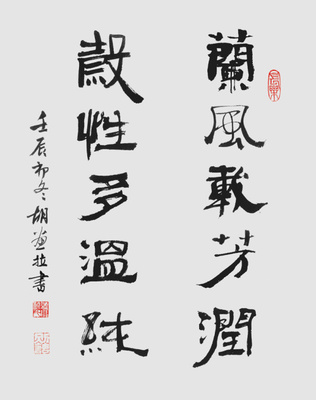 蘭風載芳潤
毅性多溫純
壬辰初冬胡書